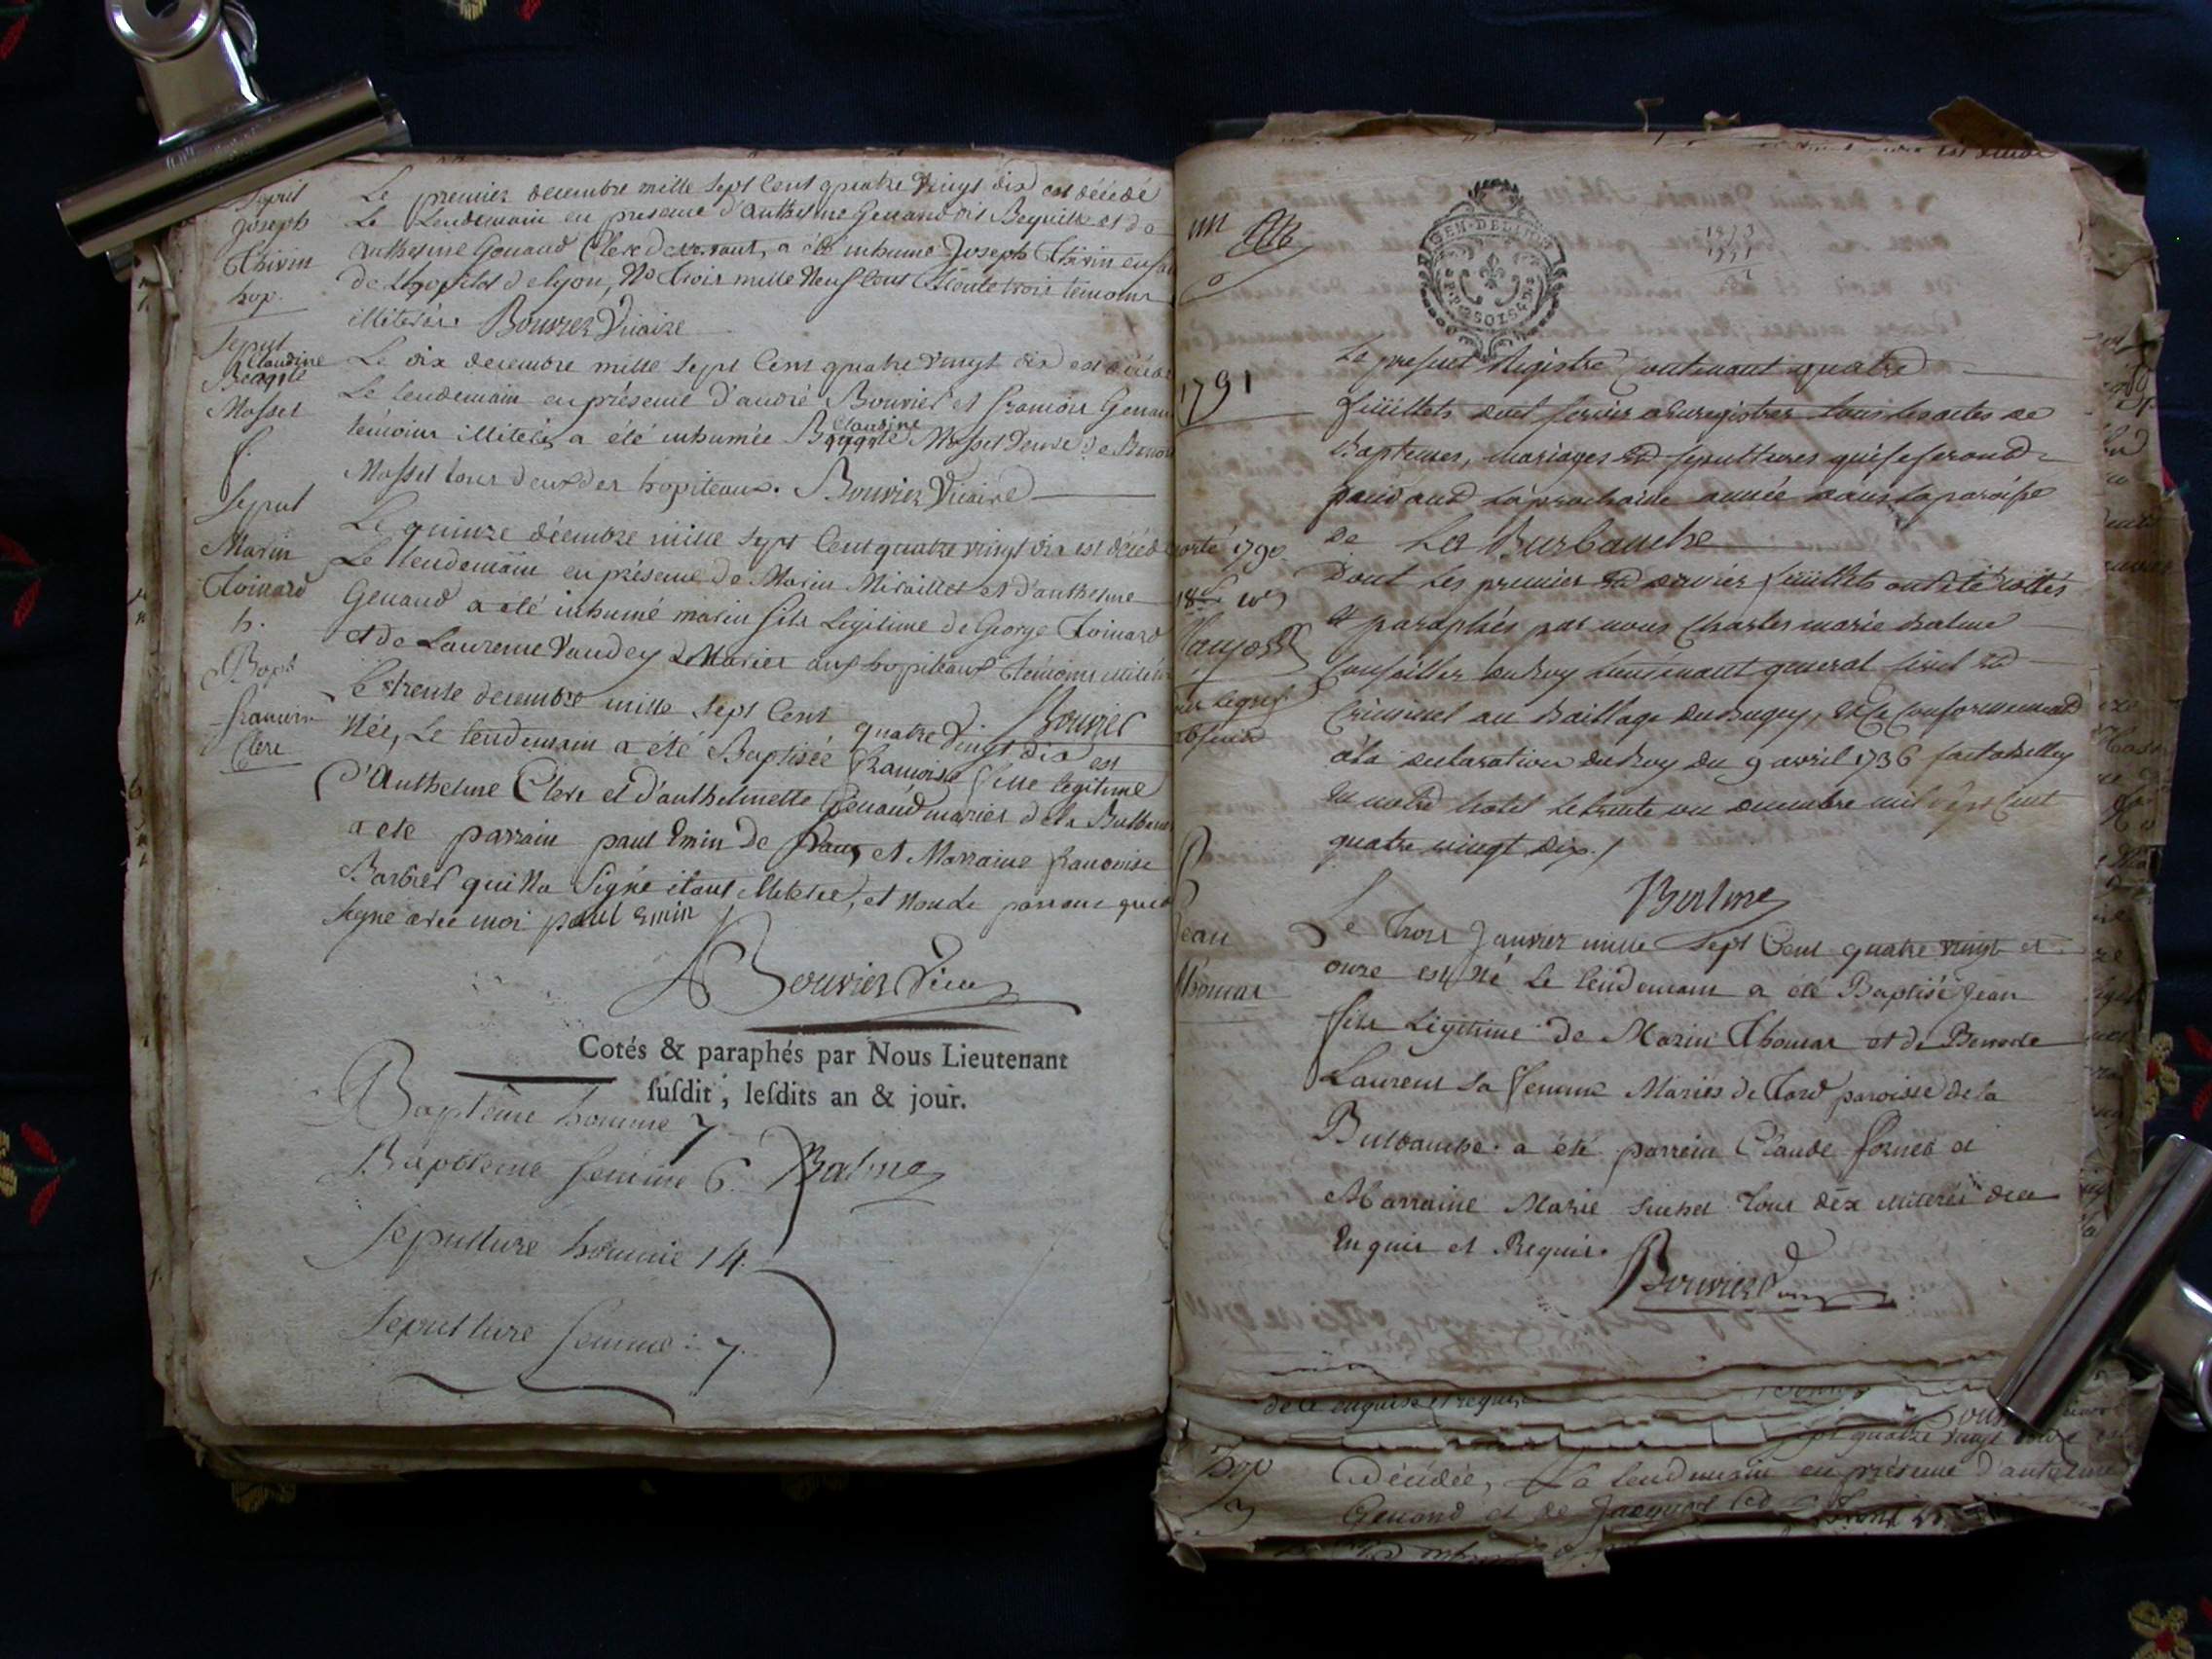 Sepul
Joseph
Thivin
hop.
Le premier decembre mille sept Cent quatre vingt dix est décédé
Le Lendemain en presence d'Anthelme Genand dit Beguille et de
Anthelme Genand Clerc devenant, a été inhumé Joseph Thivin enfa
de L'hopital de lyon, No Trois mille Neuf Cent trente trois témoins
illiterés. Bouvier Vicaire
Sepul
Claudine
Mosset
f.
Le dix decembre mille sept Cent quatre vingt dix est décéde
Le lendemain en présence d'andré Bouvier et françois Genan
témoins illiterés, a été inhumée Claudine Mosset Veuve de Benoi
Mosset tous deux des hopiteaux. Bouvier Vicaire
Sepul
Marin
Toinard
h.
Le quinze décembre mille sept Cent quatre vingt dix est décéd
Le lendemain en présence de Marin Miraillet et d'anthelme
Genand a été inhumé marin fils Légitime de George Toinard
et de Laurence Vaudey Mariés aux hopiteaux témoins illitér
Bouvier
Bapt
francoise
Clerc
Le trente decembre mille sept Cent quatre Vingt dix est
Née, Le lendemain a été Baptisée francoise fille legitime
d'Anthelme Clerc et d'anthelmette Genand mariés de la Burbanc
a ete parrain paul Emin de et Marraine francoise
Barbier qui Na Signé étant illiterée, et Non le parrain qui a
signé avec moi paul Emin
Bouvier Vicaire
Cotés & paraphés par Nous Lieutenant
ſuſdit, leſdits an & jour.
Baptême homme 7
Baptême femme 6. Balme
Sepulture homme 14.
Sepulture femme : 7.
un
GEN. DE LION
1791
Le present Registre contenant quatre
feüillets doit servir a enregistrer tous les actes de
Baptemes, mariages et sepultures qui se feront
pendant la prochaine année dans la paroisse
de La Burbanche
Dont les premier et dernier feüillets ont été cottés
et paraphés par nous Charles marie Balme
Conseiller du Roy lieutenant general Civil et
Criminel au Baillage du Bugey, Et Ce Conformement
à la declaration du Roy du 9 avril 1736 fait a Belley
En notre hotel le trente un decembre mil sept cent
quatre vingt dix./
Balme
Jean
Thomas
Le Trois Janvier mille Sept Cent quatre vingt et
onze est Né Le lendemain a été Baptisé Jean
fils Légitime de Marin Thomas et de Benoite
Laurent sa femme Mariés de Tard paroisse de la
Burbanche. a été parrein Claude fornet et
Marraine Marie Suchet Tous deux illiterés de ce
Enquis et Requis.
Bouvier
de ce enquise et requise
quatre vingt onze est
Décédée, Le lendemain en présence d'antelme
Genand et de Jacques